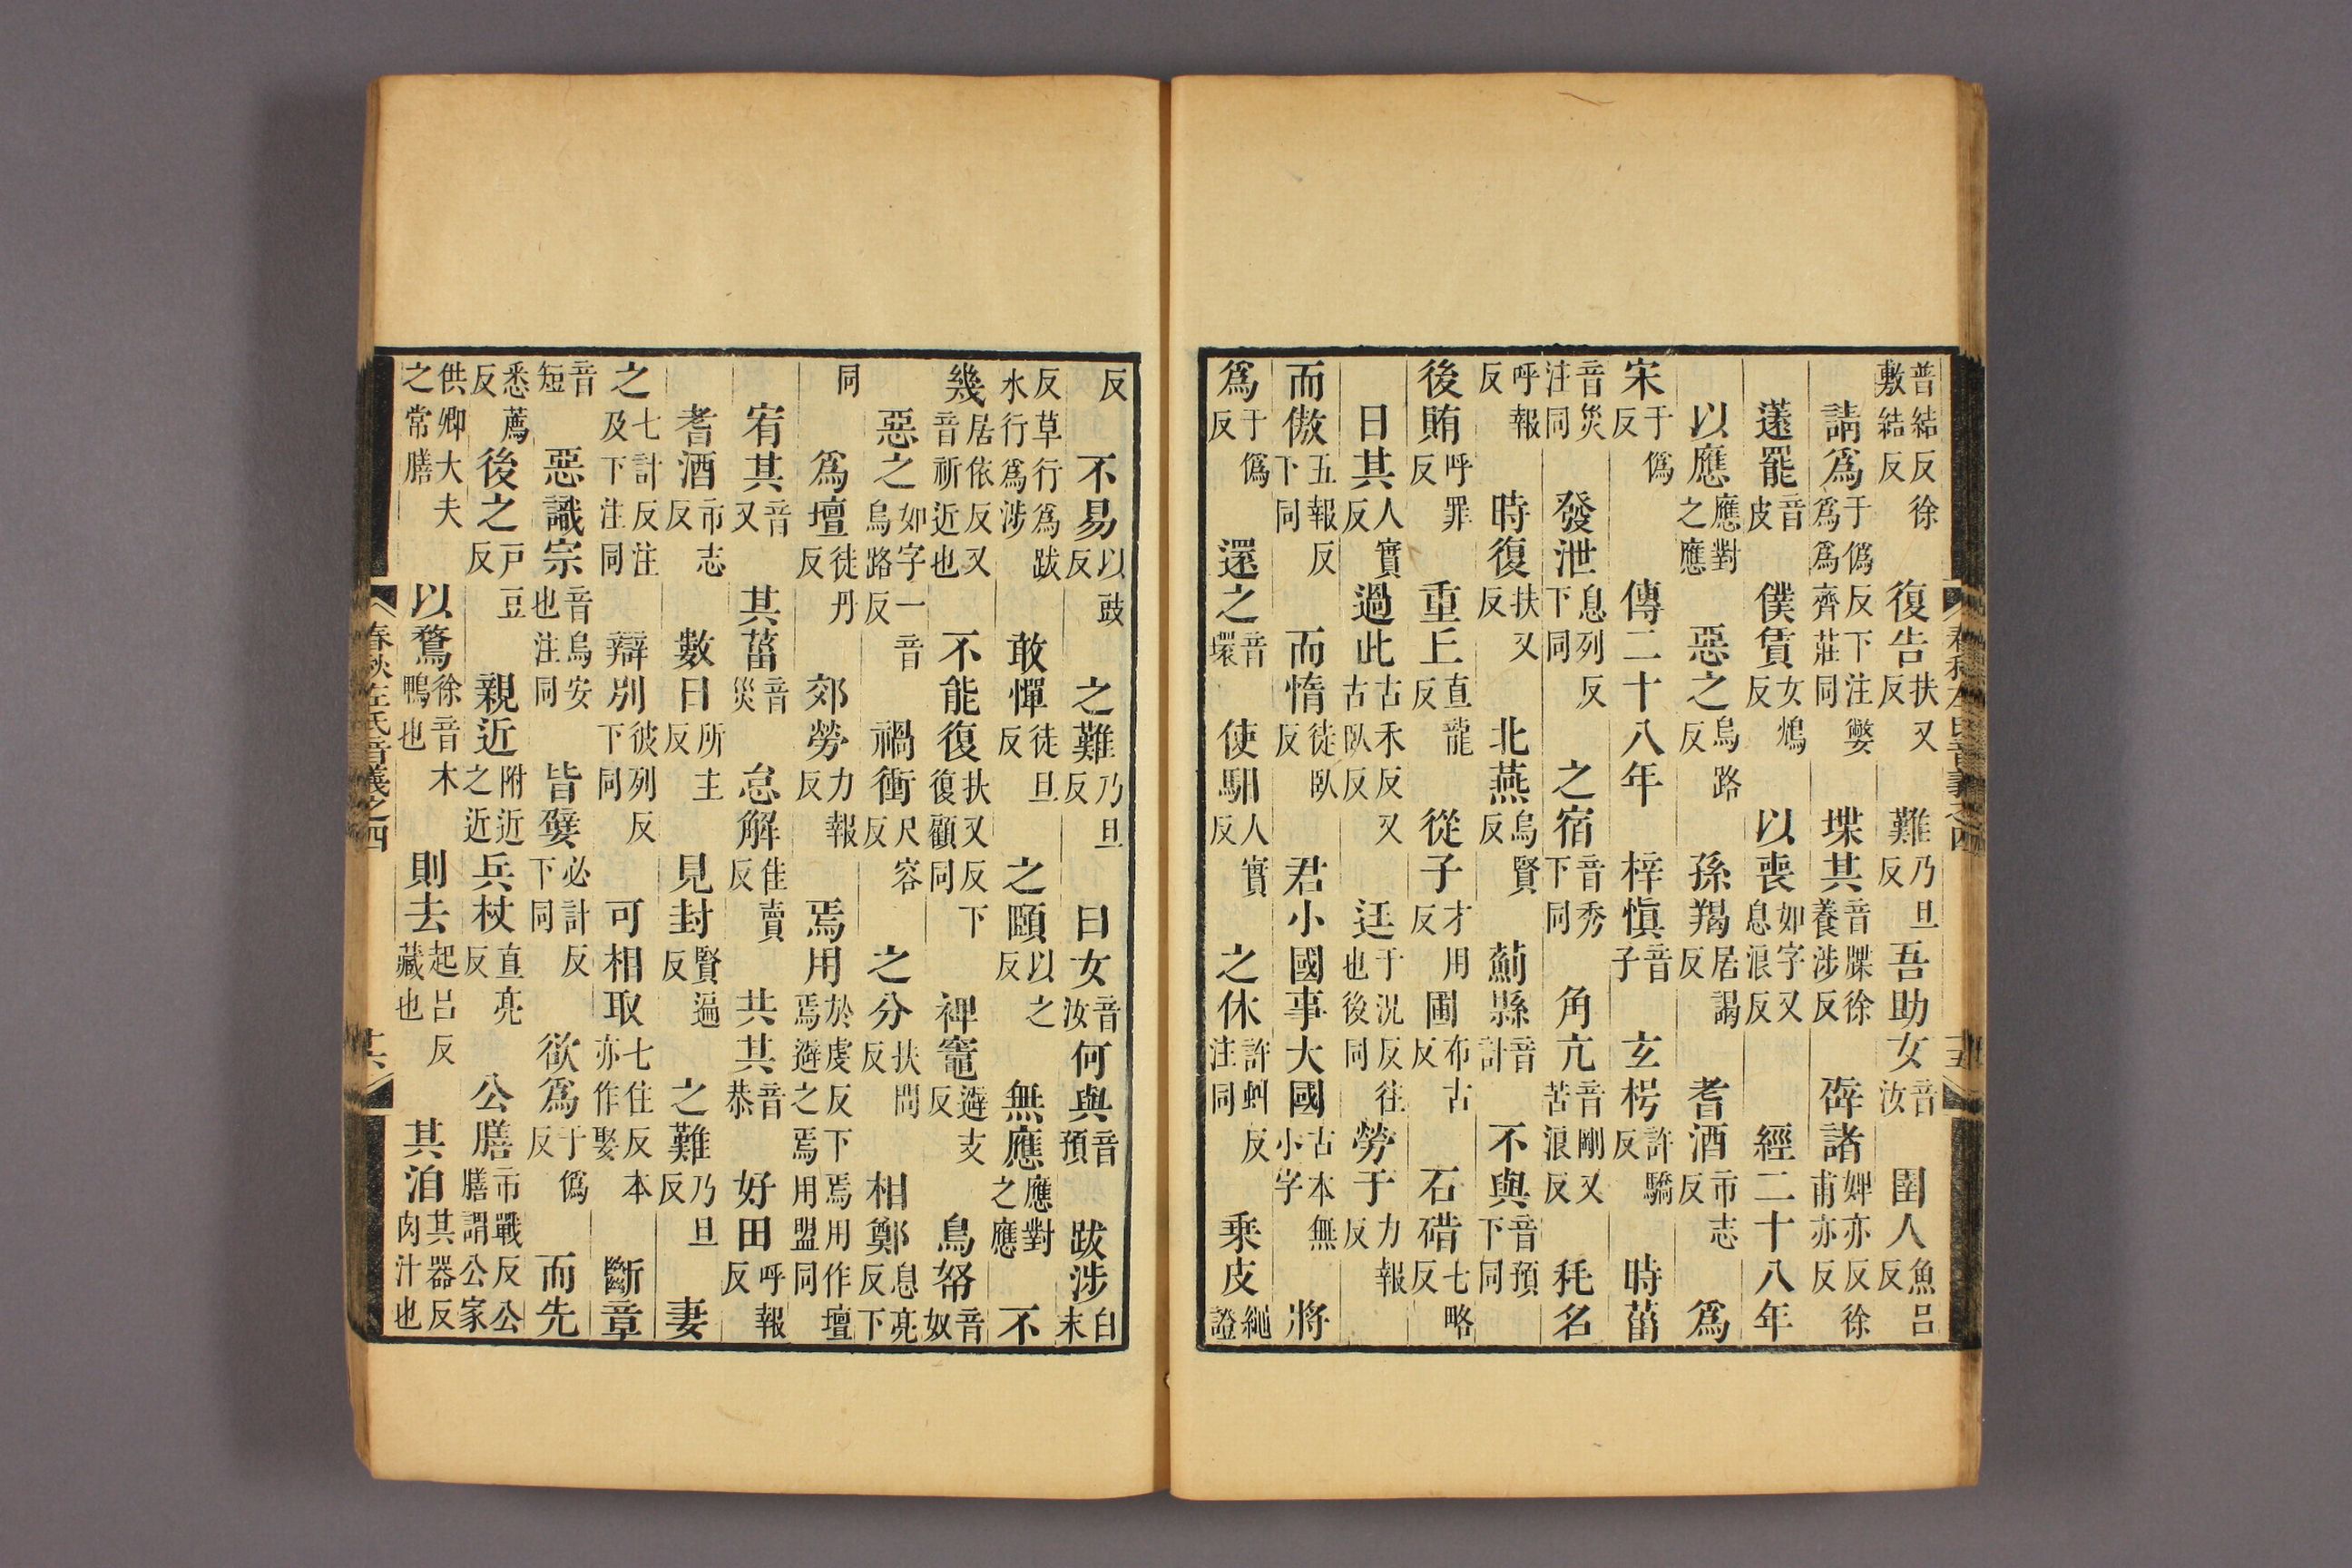 普結反徐敷結反 復告扶又反 難乃旦反 吾助女音汝 圉人魚呂反
請爲于僞反下注爲爲齊莊同 嬖 堞其音牒徐養涉反 崪諸婢亦反徐甫亦反
薳罷音皮 僕賃女鴆反 以喪如字又息浪反 經二十八年
以應應對之應 惡之烏路反 孫羯居謁反 耆酒市志反 爲
宋于僞反 傳二十八年 梓愼音子 玄枵許驕反 時菑
音災注同 發泄息列反下同 之宿音秀下同 角亢音剛又苦浪反 秏名
呼報反 時復扶又反 北燕烏賢反 薊縣音計 不與音預下同
後賄呼罪反 重丘直龍反 從子才用反 圃布古反 石碏七略反
日其人實反 過此古禾反又古臥反 迋于況反往也後同 勞于力報反
而傲五報反下同 而惰徒臥反 君小國事大國古本無小字 將
爲于僞反 還之音環 使馹人實反 之休許虯反注同 乘皮繩證
反 不易以豉反 之難乃旦反 曰女音汝 何與音預 跋涉白末
反草行爲跋水行爲涉 敢憚徒旦反 之頤以之反 無應應對之應 不
幾居依反又音祈近也 不能復扶又反下復顧同 裨竈避支反 鳥帑音奴
惡之如字一音烏路反 禍衝尺容反 之分扶問反 相鄭息亮反下
同 爲壇徒丹反 郊勞力報反 焉用於虔反下焉用作壇焉避之焉用盟同
宥其音又 其菑音災 怠解佳賣反 共其音恭 好田呼報反
耆酒市志反 數日所主反 見封賢遍反 之難乃旦反 妻
之七計反注及下注同 辯別彼列反下同 可相取七住反本亦作娶 斷章
音短 惡識宗音烏安也注同 皆嬖必計反下同 欲爲于僞反 而先
悉薦反 後之戸豆反 親近附近之近 兵杖直亮反 公膳市戰反公膳謂公家
供卿大夫之常膳 以鶩徐音木鴨也 則去起呂反藏也 其洎其器反肉汁也
春秋左氏音義之四